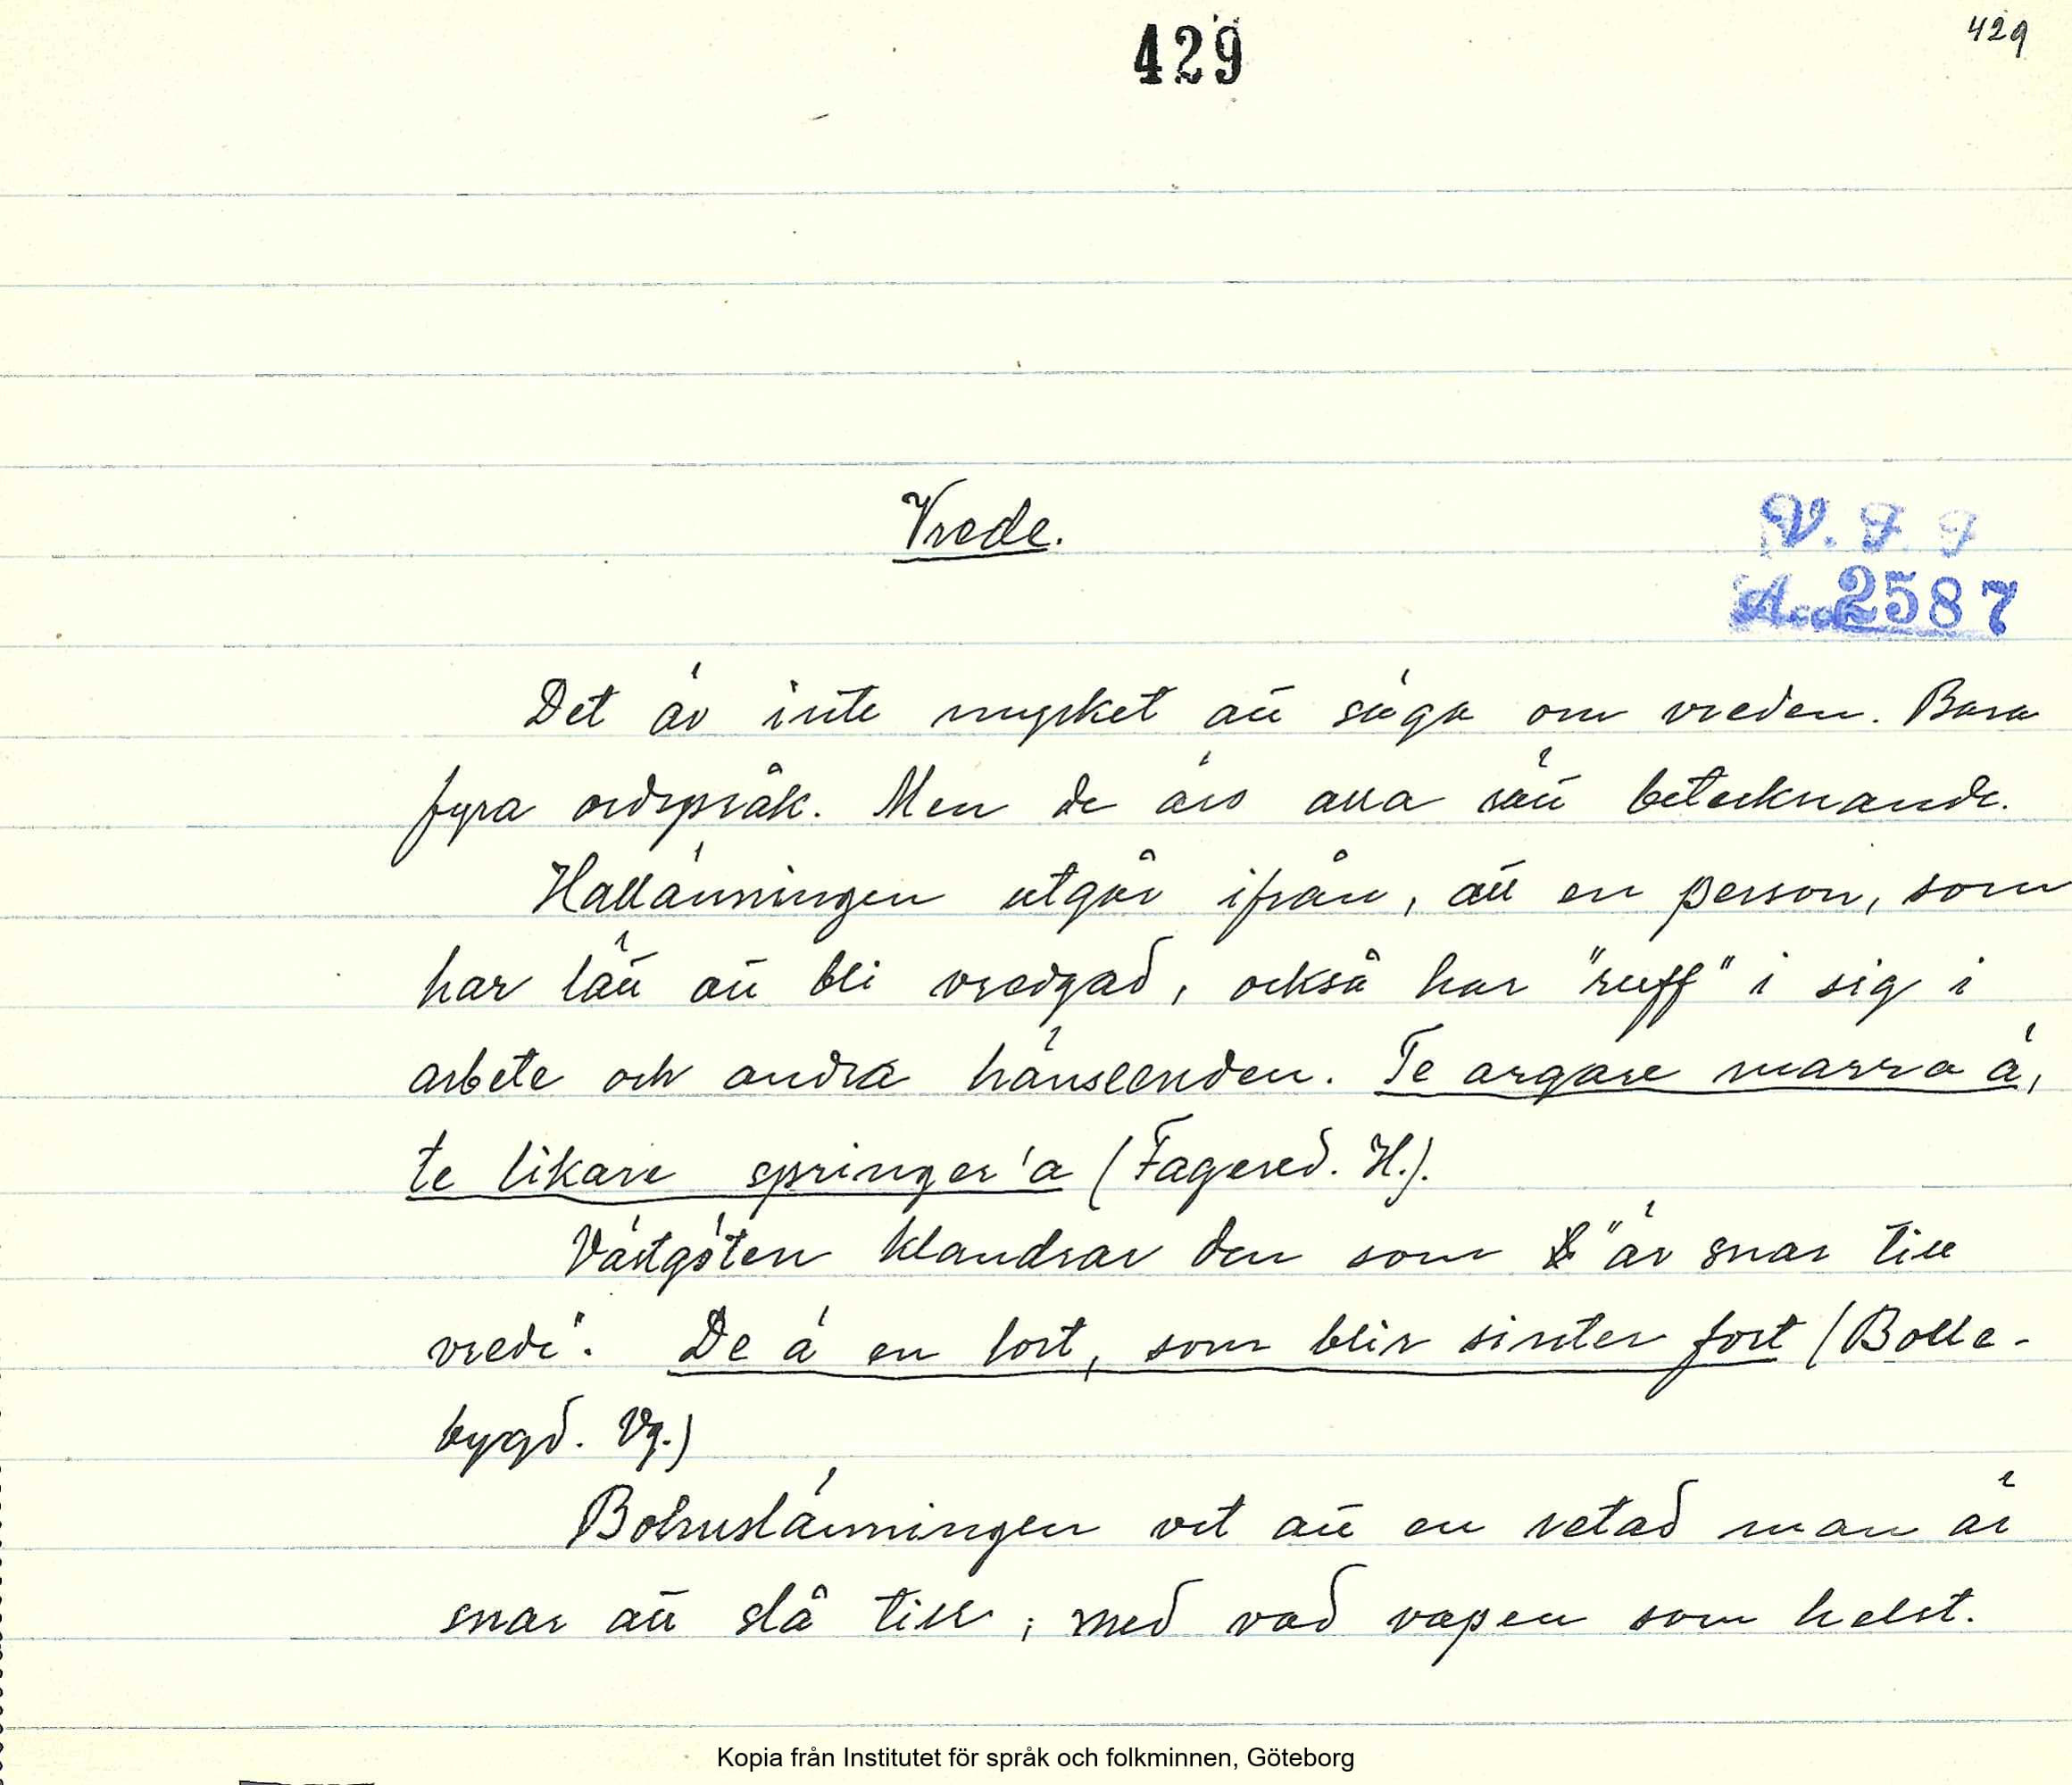 429
429
Vrede.
V. F. F
Acc. 2587
Det är inte mycket att säga om vreden. Bara
fyra ordspråk. Men de äro alla rätt betecknande.
Hallänningen utgår ifrån, att en person, som
har lätt att bli vredgad, också har "ruff" i sig i
arbete och andra hänseenden. Te argare marra ä,
te likare springer'a (Fagered. H.).
Västgöten klandrar den som "är snar till
vrede". De ä en lort, som blir sinter fort (Bolle-
bygd. Vg.)
Bohuslänningen vet att en retad man är
snar att slå till; med vad vapen som helst.
Kopia från Institutet för språk och folkminnen, Göteborg